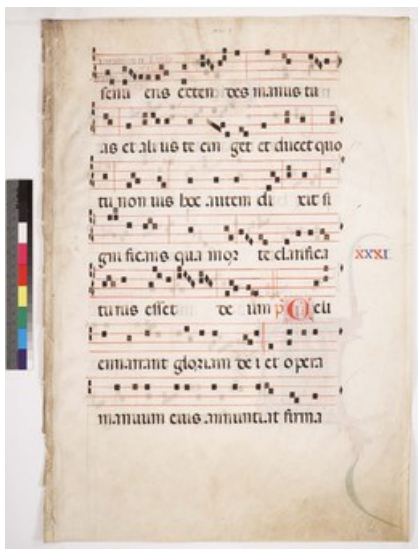 senu eris exten des manus tu
as et ali us te cin get et ducet quo
tu non uis hoc autem di xit si
gni ficans qua mor te clarifica
turus esset de um p̄s Celi
enarrant gloriam de i et opera
manuum eius annuntiat firma
xxxi